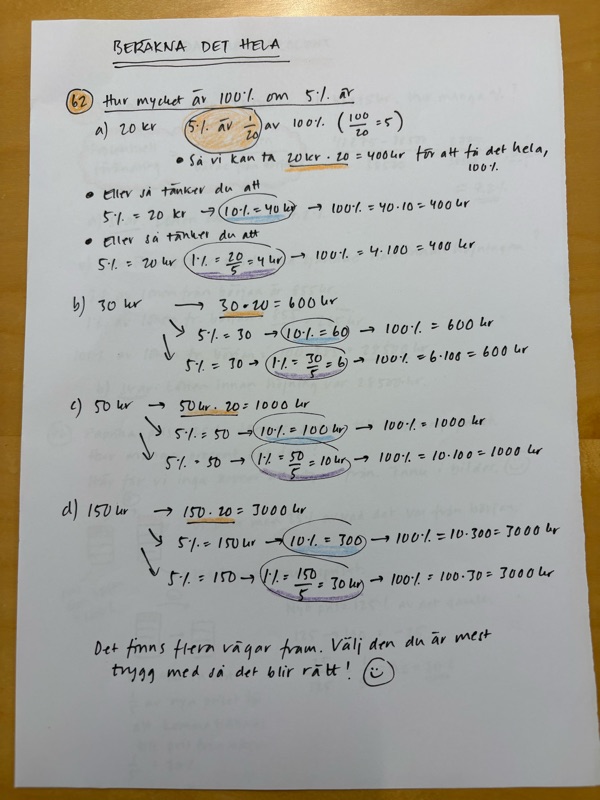 BERÄKNA DET HELA
62 Hur mycket är 100% om 5% är
a) 20 kr 5% är 1/20 av 100% (100/20 = 5)
• Så vi kan ta 20kr · 20 = 400kr för att få det hela,
100%
• Eller så tänker du att
5% = 20 kr → 10% = 40 kr → 100% = 40·10 = 400 kr
• Eller så tänker du att
5% = 20kr 1% = 20/5 = 4 kr → 100% = 4·100 = 400 kr
b) 30 kr → 30·20 = 600 kr
↘ 5% = 30 → 10% = 60 → 100% = 600 kr
↘ 5% = 30 → 1% = 30/5 = 6 → 100% = 6·100 = 600 kr
c) 50 kr → 50kr · 20 = 1000 kr
↘ 5% = 50 → 10% = 100 kr → 100% = 1000 kr
↘ 5% = 50 → 1% = 50/5 = 10 kr → 100% = 10·100 = 1000 kr
d) 150 kr → 150·20 = 3000 kr
↘ 5% = 150 kr → 10% = 300 → 100% = 10·300 = 3000 kr
↘ 5% = 150 → 1% = 150/5 = 30 kr → 100% = 100·30 = 3000 kr
Det finns flera vägar fram. Välj den du är mest
trygg med så det blir rätt! ☺